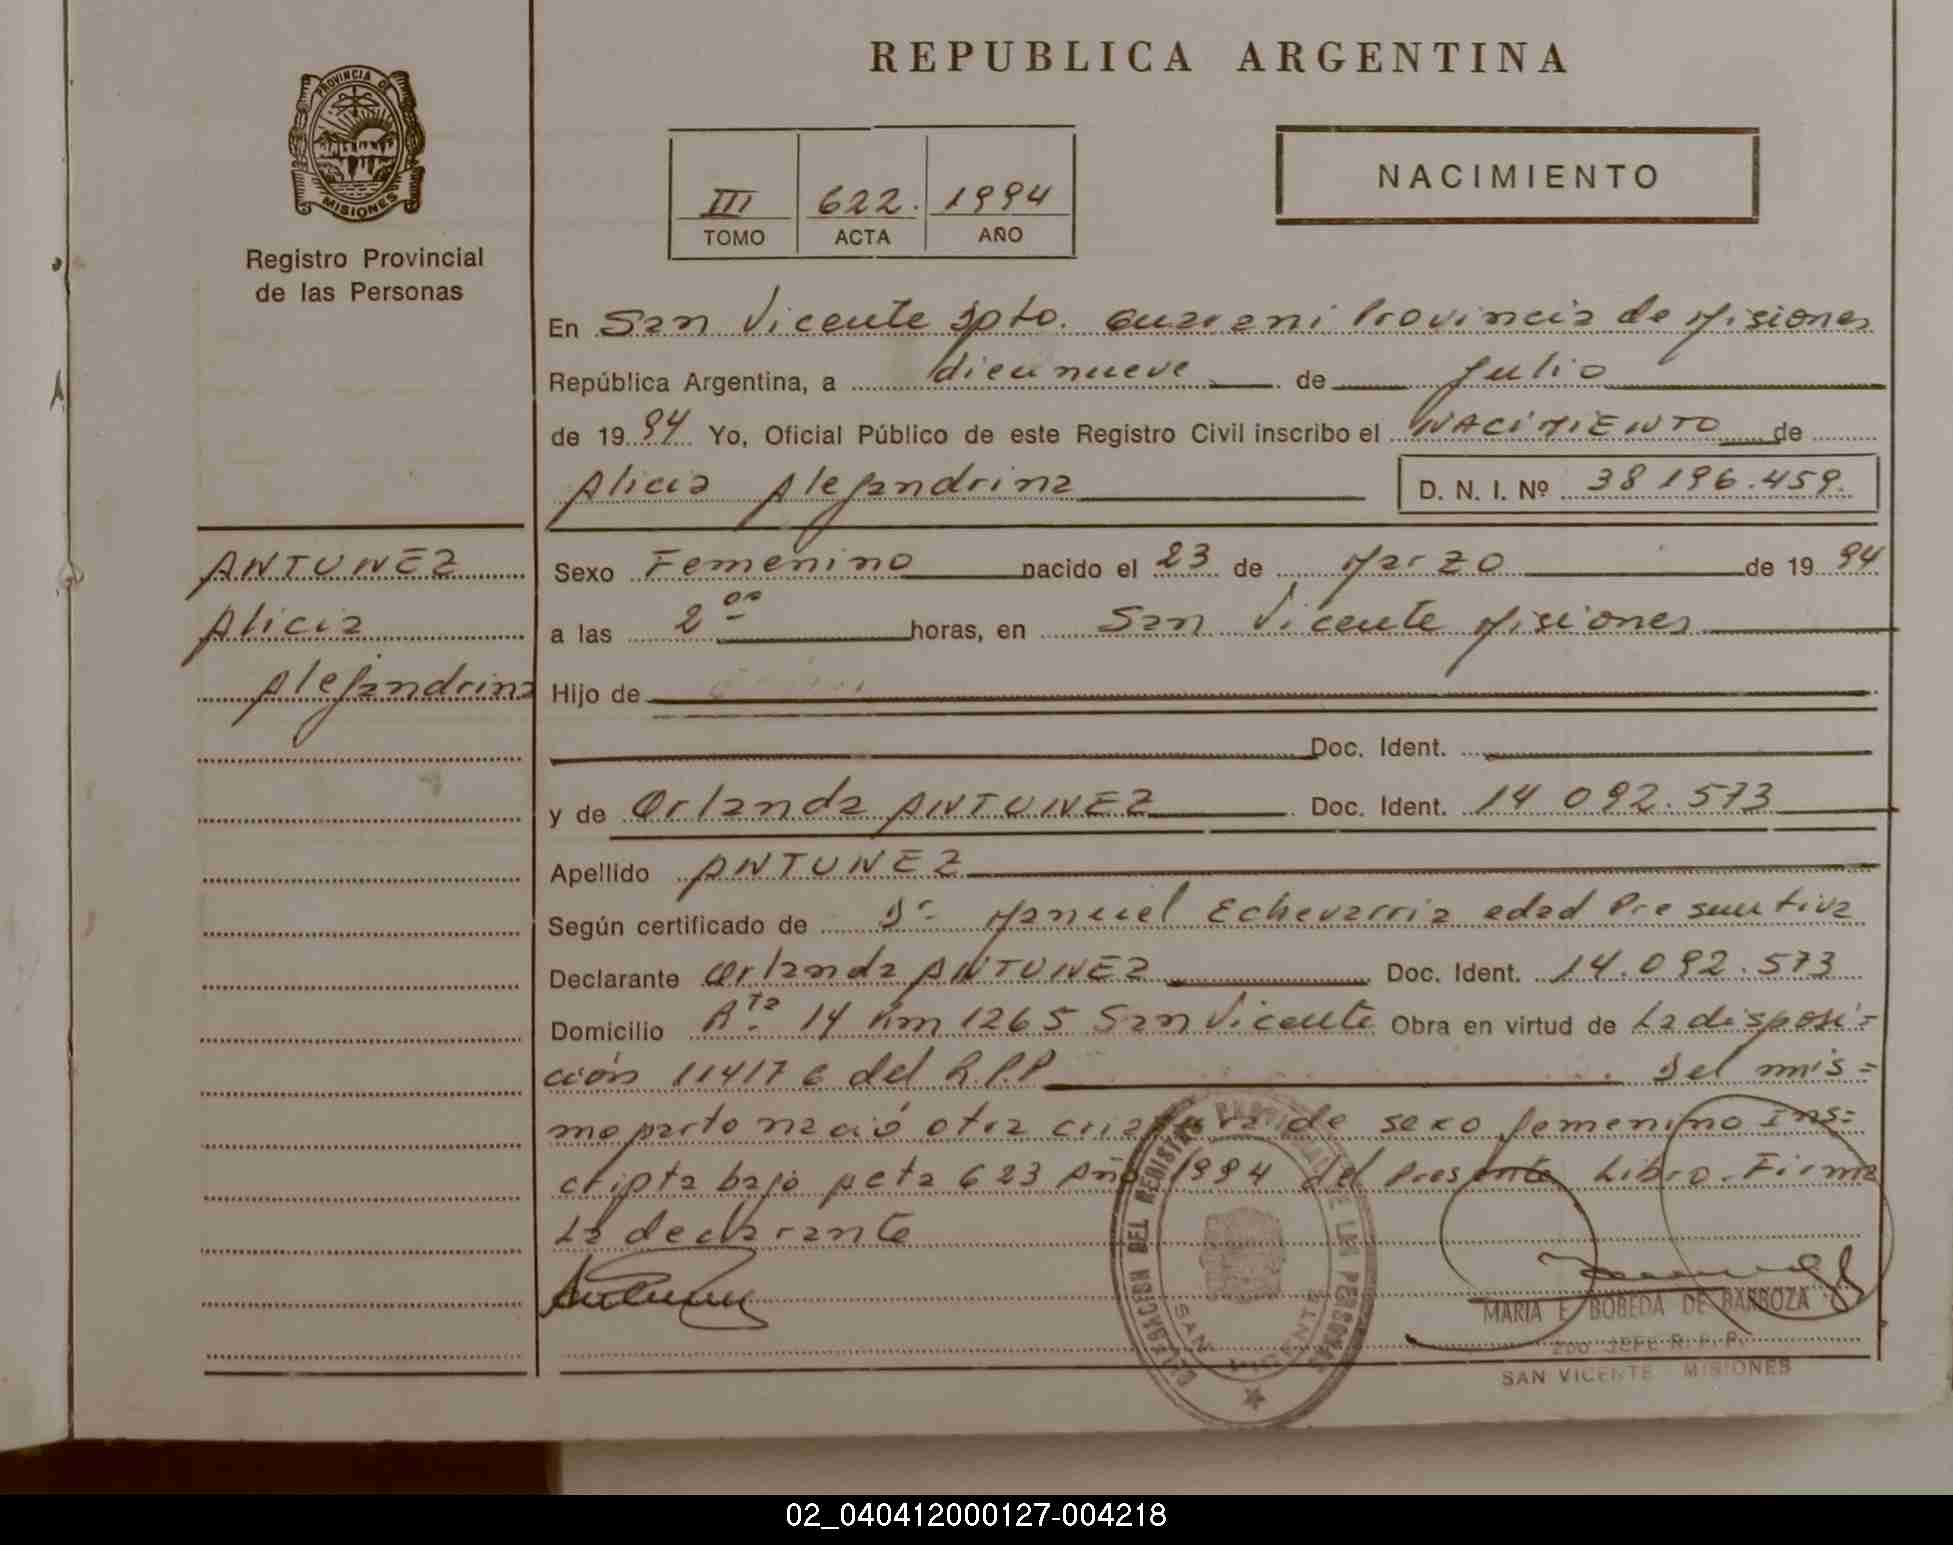 REPUBLICA ARGENTINA
PROVINCIA DE
MISIONES
Registro Provincial
de las Personas
III 622. 1994
TOMO ACTA AÑO
NACIMIENTO
En San Vicente Dpto. Guarani Provincia de Misiones
República Argentina, a diecinueve de Julio
de 1994 Yo, Oficial Público de este Registro Civil inscribo el NACIMIENTO de
Alicia Alejandrina D. N. I. Nº 38 196.459.
ANTUNEZ
Alicia
Alejandrina
Sexo Femenino nacido el 23 de Marzo de 1994
a las 2 00 horas, en San Vicente Misiones
Hijo de
Doc. Ident.
y de Orlanda ANTUNEZ Doc. Ident. 14 092.573
Apellido ANTUNEZ
Según certificado de Dr. Manuel Echevarria edad Presuntiva
Declarante Orlanda ANTUNEZ Doc. Ident. 14.092.573
Domicilio Rta. 14 Km 1265 San Vicente Obra en virtud de La disposi=
ción 114176 del R.P.P Del mis=
mo parto nació otra criatura de sexo femenino Ins=
cripta bajo Acta 623 Año 1994 del Presente Libro. Firma
La declarante
DELEGACION DEL REGISTRO PROVINCIAL DE LAS PERSONAS
SAN VICENTE
MARIA E. BOBEDA DE BARBOZA
2DO JEFE R. P. P.
SAN VICENTE MISIONES
02_040412000127-004218